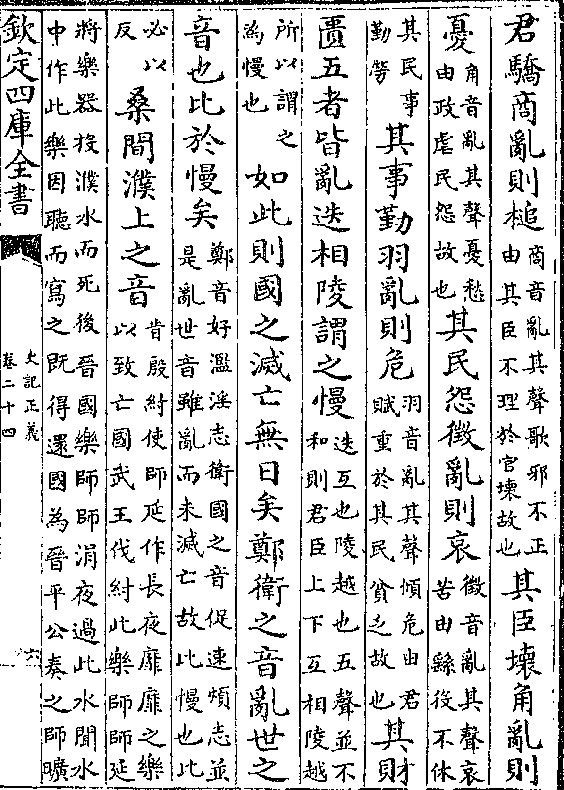 君驕商亂則槌商音亂其聲歌邪不正由其臣不理於官壞故也其臣壞角亂則
憂角音亂其聲憂愁由政虐民怨故也其民怨徵亂則哀徵音亂其聲哀苦由繇役不休
其民事勤勞其事勤羽亂則危羽音亂其聲傾危由君賦重於其民貧乏故也其財
匱五者皆亂迭相陵謂之慢迭互也陵越也五聲並不和則君臣上下互相陵越
所以謂之為慢也如此則國之滅亡無日矣鄭衛之音亂世之
音也比於慢矣鄭音好濫淫志衛國之音促速煩志並是亂世音雖亂而未滅亡故比慢也比
必以反桑間濮上之音昔殷紂使師延作長夜靡靡之樂以致亡國武王伐紂此樂師師延
將樂器投濮水而死後晉國樂師師涓夜過此水聞水中作此樂因聽而寫之既得還國為晉平公奏之師曠
欽定四庫全書
史記正義
卷二十四
六